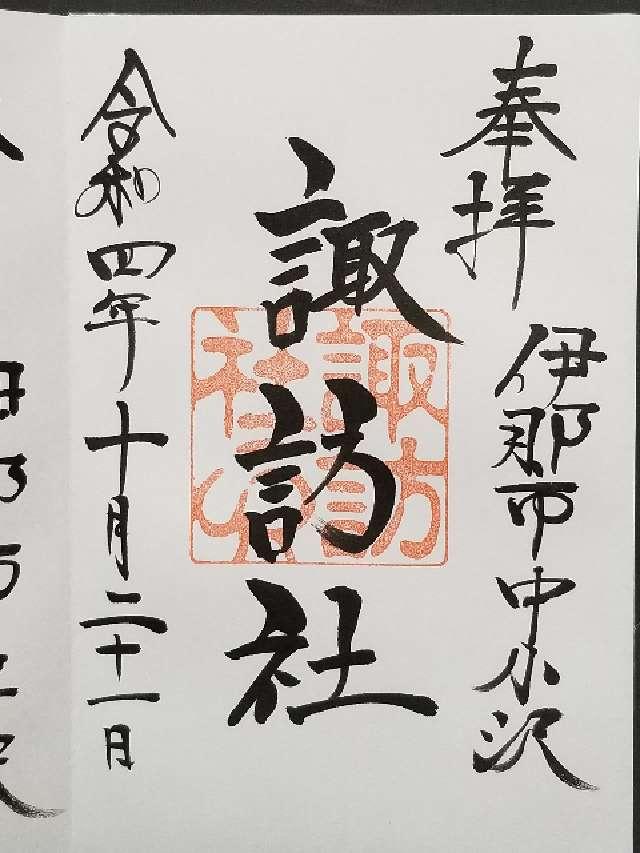 奉拝
伊那市中小沢
諏訪社
諏訪
社
令和四年十月二十一日